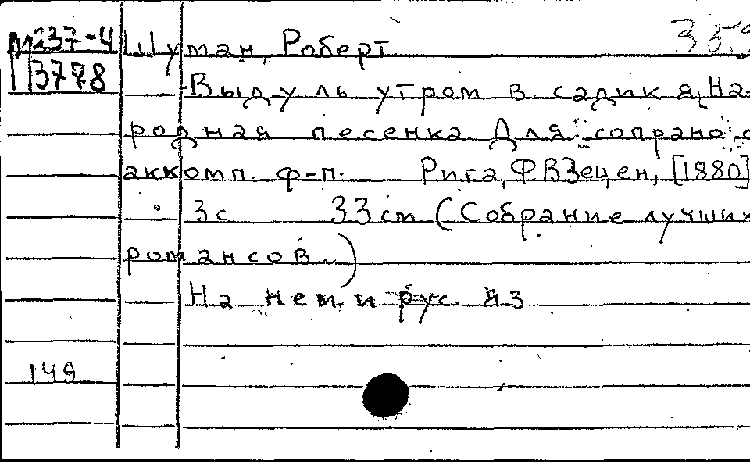 М237-4 Шуман, Роберт 353
13778
Выду ль утром в садик я, На-
родная песенка. Для сопрано с
аккомп. ф-п. Рига, Ф.В Зецен, [1880]
3 с 33 см (Собрание лучших
романсов.)
На нем. и рус. яз
149